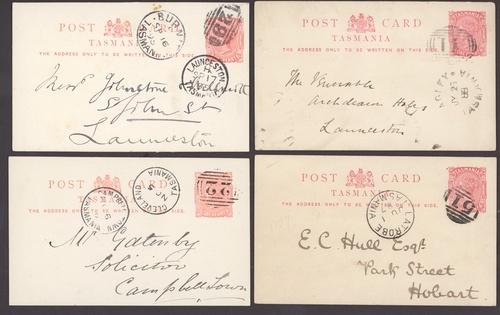 POST CARD
TASMANIA
THE ADDRESS ONLY TO BE WRITTEN ON THIS SIDE.
LAUNCESTON
Johnstone
St John St
Launceston
POST CARD
TASMANIA
THE ADDRESS ONLY TO BE WRITTEN ON THIS SIDE.
The Venerable
Archdeacon Hales
Launceston
POST CARD
TASMANIA
THE ADDRESS ONLY TO BE WRITTEN ON THIS SIDE.
CLEVELAND
TASMANIA
52
Mr Gatenby
Solicitor
Campbell Town
POST CARD
TASMANIA
THE ADDRESS ONLY TO BE WRITTEN ON THIS SIDE.
LATROBE
TASMANIA
E.C. Hull Esqre
Park Street
Hobart